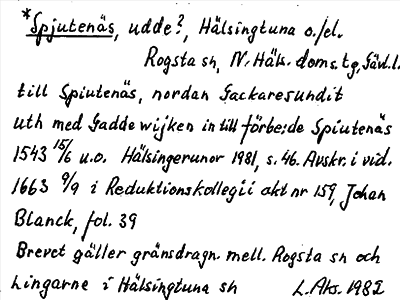 *Spjutenäs, udde?, Hälsingtuna o./el.
Rogsta sn, N. Häls. doms. tg, Gävl. l.
till Spiutenäs, nordan Gackaresundit
uth med Gadde wijken in till förbe:de Spiutenäs
1543 15/6 u.o. Hälsingerunor 1981, s. 46. Avskr. i vid.
1663 9/9 i Reduktionskollegii akt nr 159, Johan
Blanck, fol. 39
Brevet gäller gränsdragn. mell. Rogsta sn och
Lingarne i Hälsingtuna sn L. Aks. 1982